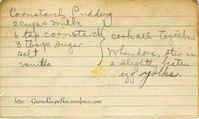 Cornstarch Pudding
2 cups milk
6 tsp cornstarch
3 tbsp sugar
salt
vanilla
cook all together.
When done, stir in
2 slightly beaten
egg yolks.
http://GrannysRecipeBox.wordpress.com